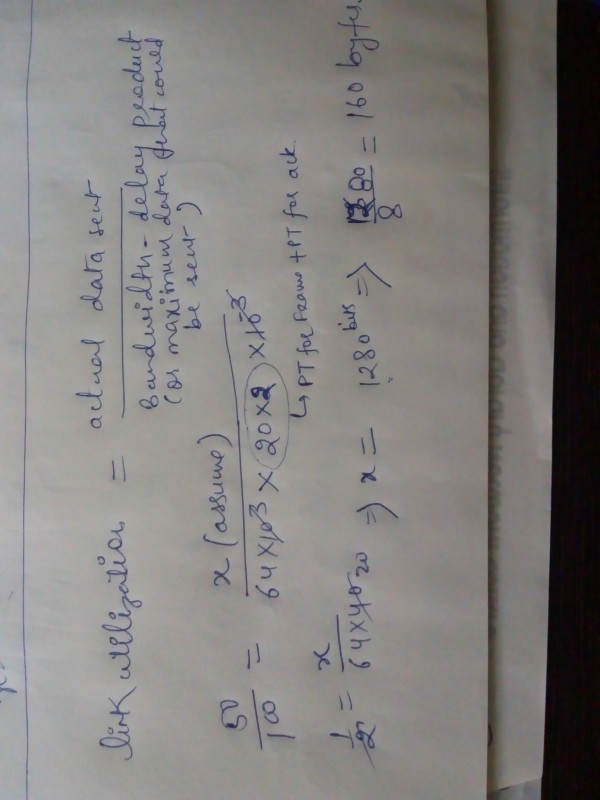 link utilization = actual data sent
Bandwidth-delay product
(or maximum data that could
be sent)
50/100 = x (assume) / 64×10^3 × 20×2 ×10^-3
↳ PT for Frame + PT for ack.
1/2 = x / 64×40 20 ⇒ x = 1280 bits ⇒ 1280/8 = 160 bytes.